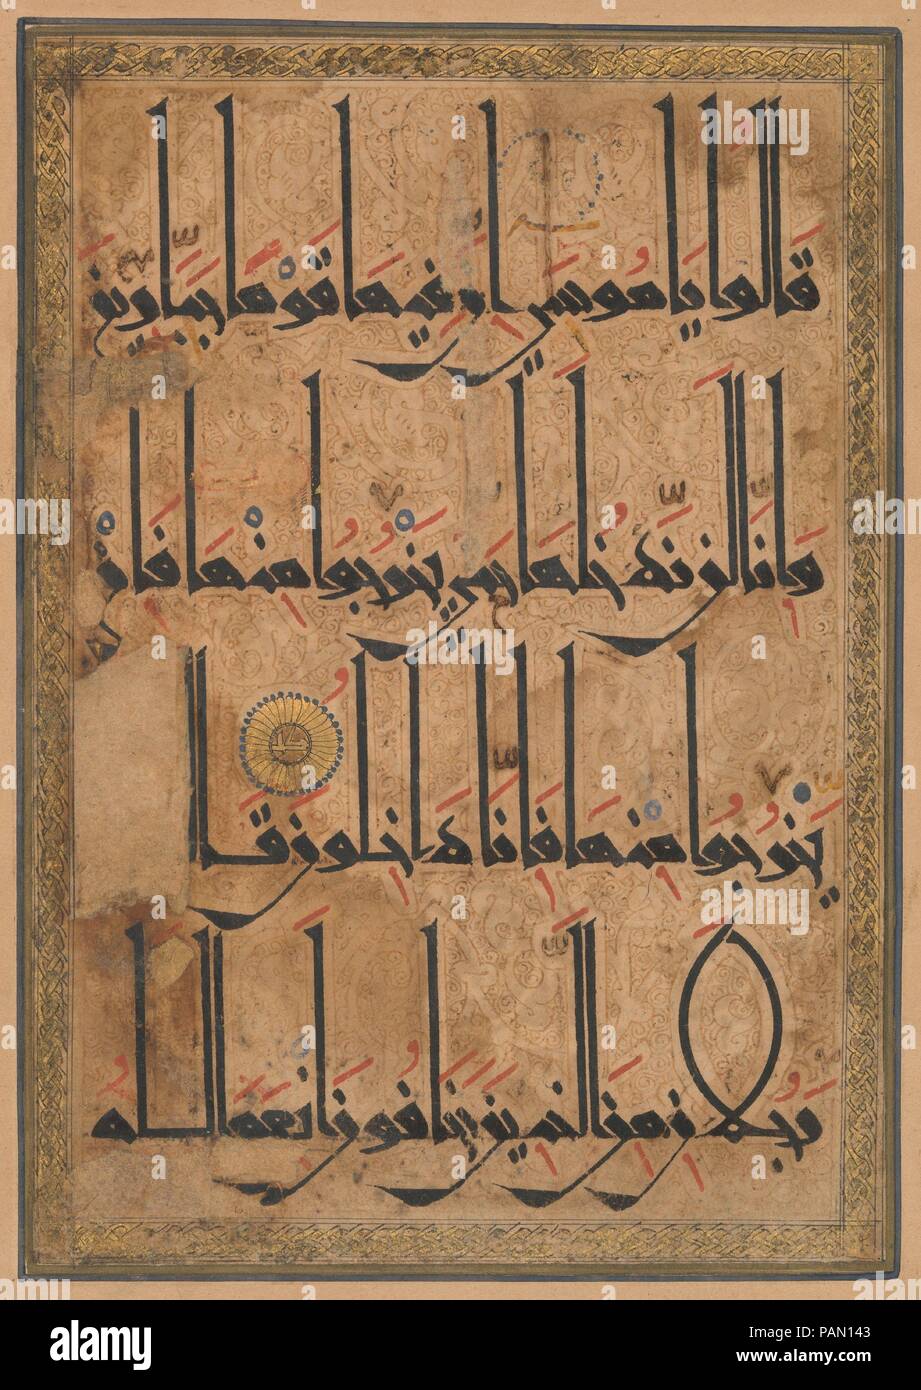 قالوا يا موسى ان فيها قوما جبارين
وانا لن ندخلها حتى يخرجوا منها فان
يخرجوا منها فانا داخلون قال
رجلان من الذين يخافون انعم الله
alamy
Image ID: PAN143
www.alamy.com